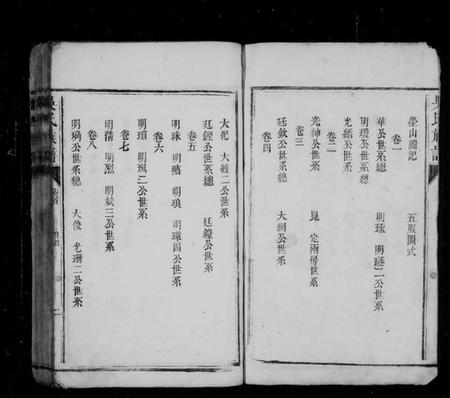 塋山圖記 五服圖式
卷一
華公世系總
明瑗公世系總 明琢 明璲二公世系
光縉公世系
卷二
光紳公世系 見定兩房世系
卷三
廷欽公世系 大綱公世系
卷四
大杞 大經二公世系
廷鏗公世系總 廷鐘公世系
卷五
明珠 明瑭 明琅 明璋四公世系
卷六
明瑄 明珮二公世系
卷七
明清 明烈 明斌三公世系
卷八
明瑀公世系總 大俊 光珊二公世系
吳氏族譜
卷首